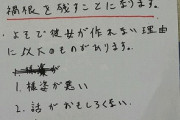 禍根を残すことになります。
・よそで彼女が作れない理由
に以下のものがあります。
1. 様が悪い
2. 話がおもしろくない。